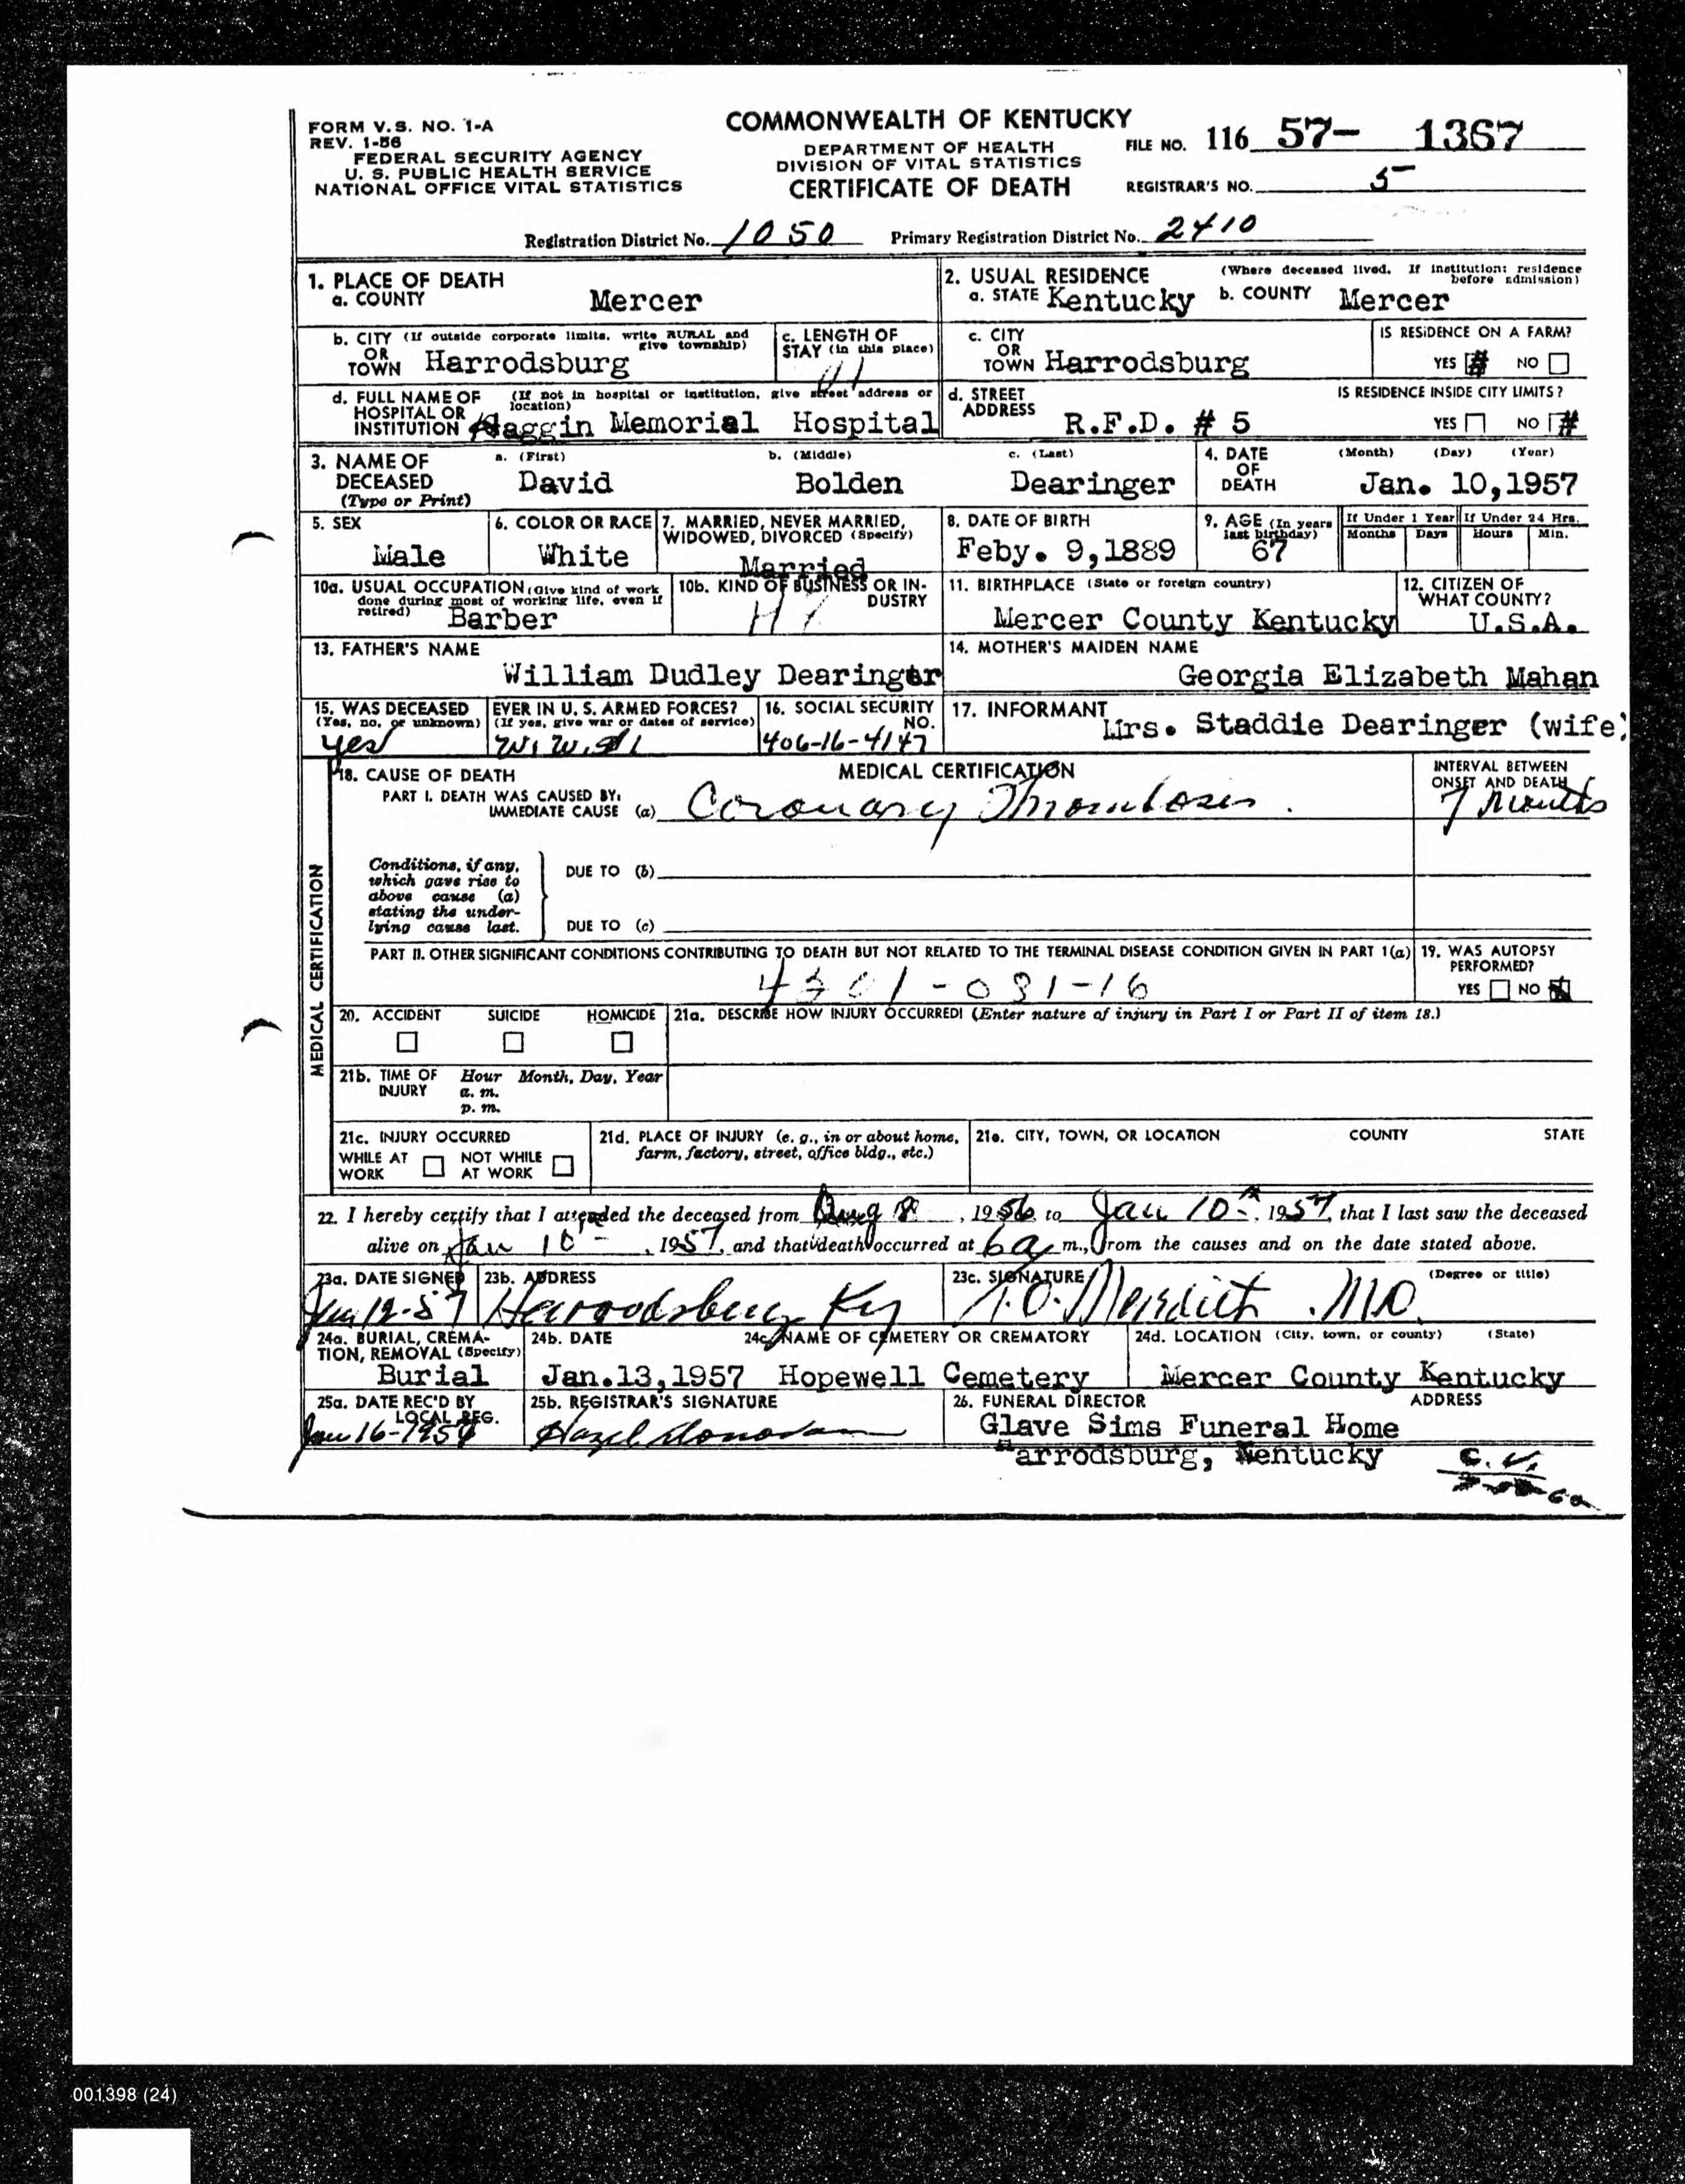 FORM V.S. NO. 1-A
REV. 1-56
FEDERAL SECURITY AGENCY
U. S. PUBLIC HEALTH SERVICE
NATIONAL OFFICE VITAL STATISTICS
COMMONWEALTH OF KENTUCKY
DEPARTMENT OF HEALTH
DIVISION OF VITAL STATISTICS
CERTIFICATE OF DEATH
FILE NO. 116 57- 1367
REGISTRAR'S NO. 5
Registration District No. 1050 Primary Registration District No. 2410
1. PLACE OF DEATH
a. COUNTY Mercer
2. USUAL RESIDENCE (Where deceased lived. If institution: residence before admission)
a. STATE Kentucky b. COUNTY Mercer
b. CITY (If outside corporate limits, write RURAL and give township)
OR TOWN Harrodsburg
c. LENGTH OF STAY (in this place)
c. CITY OR TOWN Harrodsburg
IS RESIDENCE ON A FARM?
YES # NO
d. FULL NAME OF HOSPITAL OR INSTITUTION (If not in hospital or institution, give street address or location)
Haggin Memorial Hospital
d. STREET ADDRESS R.F.D. # 5
IS RESIDENCE INSIDE CITY LIMITS?
YES NO #
3. NAME OF DECEASED (Type or Print)
a. (First) b. (Middle) c. (Last)
David Bolden Dearinger
4. DATE OF DEATH (Month) (Day) (Year)
Jan. 10,1957
5. SEX
Male
6. COLOR OR RACE
White
7. MARRIED, NEVER MARRIED, WIDOWED, DIVORCED (Specify)
Married
8. DATE OF BIRTH
Feby. 9,1889
9. AGE (In years last birthday)
67
If Under 1 Year If Under 24 Hrs.
Months Days Hours Min.
10a. USUAL OCCUPATION (Give kind of work done during most of working life, even if retired)
Barber
10b. KIND OF BUSINESS OR INDUSTRY
11. BIRTHPLACE (State or foreign country)
Mercer County Kentucky
12. CITIZEN OF WHAT COUNTY?
U.S.A.
13. FATHER'S NAME
William Dudley Dearinger
14. MOTHER'S MAIDEN NAME
Georgia Elizabeth Mahan
15. WAS DECEASED EVER IN U. S. ARMED FORCES?
(Yes, no, or unknown) (If yes, give war or dates of service)
yes W.W.
16. SOCIAL SECURITY NO.
406-16-4147
17. INFORMANT
Mrs. Staddie Dearinger (wife)
MEDICAL CERTIFICATION
18. CAUSE OF DEATH
MEDICAL CERTIFICATION
INTERVAL BETWEEN ONSET AND DEATH
PART I. DEATH WAS CAUSED BY:
IMMEDIATE CAUSE (a) Coronary Thrombosis. 7 months
Conditions, if any, which gave rise to above cause (a) stating the underlying cause last.
DUE TO (b)
DUE TO (c)
PART II. OTHER SIGNIFICANT CONDITIONS CONTRIBUTING TO DEATH BUT NOT RELATED TO THE TERMINAL DISEASE CONDITION GIVEN IN PART 1(a)
19. WAS AUTOPSY PERFORMED?
YES NO
20. ACCIDENT SUICIDE HOMICIDE
21a. DESCRIBE HOW INJURY OCCURRED! (Enter nature of injury in Part I or Part II of item 18.)
21b. TIME OF INJURY Hour Month, Day, Year
a. m.
p. m.
21c. INJURY OCCURRED
WHILE AT WORK NOT WHILE AT WORK
21d. PLACE OF INJURY (e. g., in or about home, farm, factory, street, office bldg., etc.)
21e. CITY, TOWN, OR LOCATION COUNTY STATE
22. I hereby certify that I attended the deceased from Aug 8, 1956, to Jan 10th, 1957, that I last saw the deceased
alive on Jan 10th, 1957, and that death occurred at 6 a m., from the causes and on the date stated above.
23a. DATE SIGNED
Jan 12-57
23b. ADDRESS
Harrodsburg Ky
23c. SIGNATURE (Degree or title)
T.O. Meredith. MD.
24a. BURIAL, CREMATION, REMOVAL (Specify)
Burial
24b. DATE
Jan.13,1957
24c. NAME OF CEMETERY OR CREMATORY
Hopewell Cemetery
24d. LOCATION (City, town, or county) (State)
Mercer County Kentucky
25a. DATE REC'D BY LOCAL REG.
Jan 16-1957
25b. REGISTRAR'S SIGNATURE
Hazel Donovan
26. FUNERAL DIRECTOR ADDRESS
Glave Sims Funeral Home
Harrodsburg, Kentucky
001398 (24)